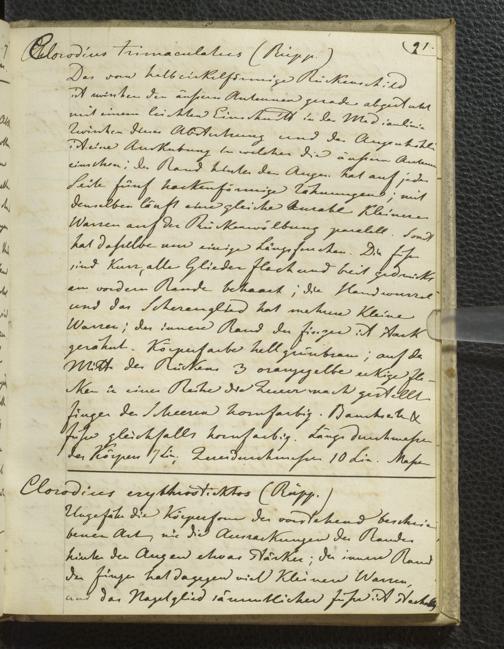 91.
Clorodius trimaculatus (Rüpp.)
Das vorn halbcirkelförmige Rückenschild
ist zwischen den äußern Antennen gerade abgestutzt
mit einem leichten Einschnitt in der Medianlinie
zwischen dieser Abstutzung und der Augenhöhle
ist eine Auskerbung in welcher die äußern Antennen
einstehen; der Rand hinter den Augen hat auf jeder
Seite fünf hackenförmige Zahnungen; mit
denselben läuft eine gleiche Anzahl kleiner
Warzen auf der Rückenwölbung parallel. Sonst
hat dasselbe nur einige Längsfurchen. Die Füße
sind kurz, alle Glieder flach und breit gedrückt
am vordern Rande behaart; die Handwurzel
und das Scherenglied hat mehrere kleine
Warzen; der innere Rand der Finger ist stark
gezähnt. Körperfarbe hell grünbraun; auf der
Mitte des Rückens 3 orangegelbe eckige Fle-
cken in einer Reihe der Queere nach gestellt
Finger der Scheeren hornfarbig. Bauchseite &
Füße gleichfalls hornfarbig. Längsdurchmesser
des Körpers 7 Lin. Queerdurchmesser 10 Lin.
Clorodius erythrostiktos (Rüpp.)
Ungefähr die Körperform der vorstehend beschrie-
benen Art, nur die Auszackungen des Randes
hinter den Augen etwas stärker; der innere Rand
der Finger hat dagegen viel kleinere Warzen,
und das Nagelglied sämmtlicher Füße ist